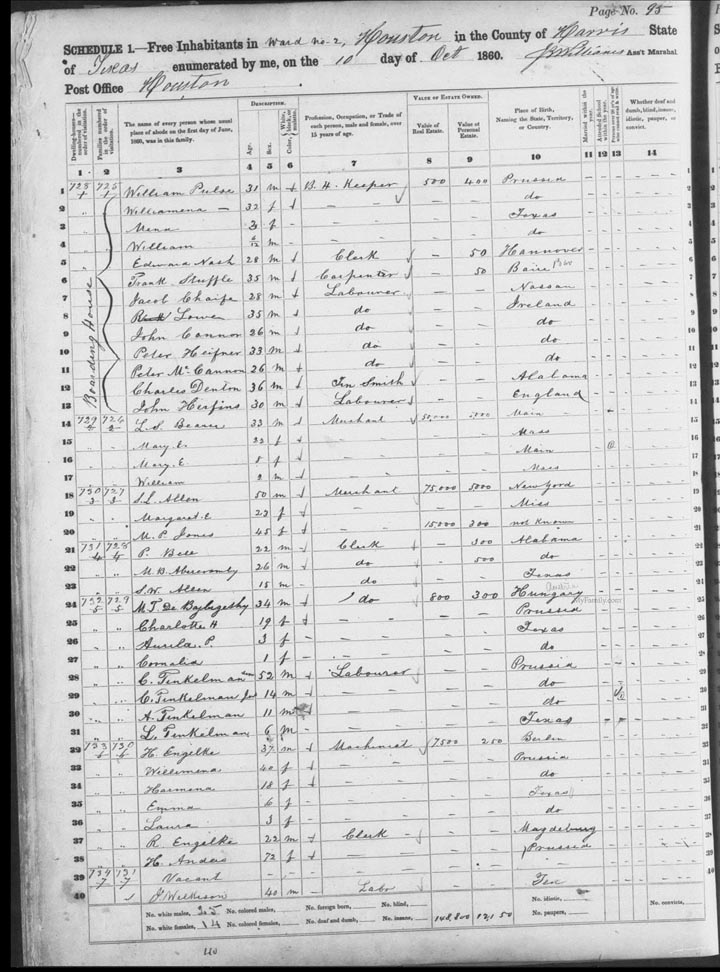 Page No. 95
SCHEDULE 1.—Free Inhabitants in Ward No. 2, Houston in the County of Harris State
of Texas enumerated by me, on the 10 day of Oct 1860. Ass't Marshal
Post Office Houston
DESCRIPTION. VALUE OF ESTATE OWNED.
Dwelling-houses—numbered in the order of visitation. Families numbered in the order of visitation. The name of every person whose usual place of abode on the first day of June, 1860, was in this family. Age. Sex. Color, Profession, Occupation, or Trade of each person, male and female, over 15 years of age. Value of Real Estate. Value of Personal Estate. Place of Birth, Naming the State, Territory, or Country. Married within the year. Attended School within the year. Whether deaf and dumb, blind, insane, idiotic, pauper, or convict.
1 2 3 4 5 6 7 8 9 10 11 12 13 14
Boarding House
1 728 725 William Pulse 31 m B. H. Keeper 500 400 Prussia 1
2 " " Williamena — 32 f — — — do 2
3 " " Mena — f — — — Texas 3
4 William m — — — do 4
5 Edward Nash 28 m Clerk — 50 Hannover 5
6 Frank Stuffle 35 m Carpenter — 50 6
7 Jacob Chaife 28 m Labourer — — Nassau 7
8 Lowe 35 m do — — Ireland 8
9 John Cannon 26 m do — — do 9
10 Peter Heifner 33 m do — — do 10
11 Peter Mc Cannon 26 m do — — do 11
12 Charles Denton 36 m Tin Smith — — Alabama 12
13 John Heifins 30 m Labourer — — England 13
14 729 726 L. S. 33 m Merchant Main 14
15 " " Mary E. 22 f — — — Mass 15
16 " " Mary. E f — — — Main 16
17 " " William 2 m — — — Mass 17
18 730 727 S. L. Allen 50 m Merchant 75,000 5000 New Yord 18
19 " " Margaret E f — — — Miss 19
20 " " M. P. Jones 45 f — 15000 300 not Known 20
21 731 728 P. Bell 22 m Clerk — 300 Alabama 21
22 " " M. B. Abercromby 26 m do — 500 do 22
23 " " S. W. Allen 15 m do — — Texas 23
24 732 729 M. T. De 34 m do 800 300 Hungary 24
MyFamily.com
25 " " Charlotte H 19 f — — — Prussia 25
26 " " Aurila. P. 3 f — — — Texas 26
27 " " Cornalia 1 f — — — do 27
28 " " C. Tinkelman 52 m Labourer — — Prussia 28
29 " " C. Tinkelman 14 m — — — do 29
30 " " A. Tinkelman 11 m — — — do 30
31 " " L. Tinkelman 6 m — — — Texas 31
32 733 730 H. Engelke 37 m Machinist 7500 250 Berlin 32
33 " " Willimena 40 f — — — Prussia 33
34 " " Harmena 18 f — — — do 34
35 " " Emma 6 f — — — Texas 35
36 " " Laura 3 f — — — do 36
37 " " R. Engelke 22 m Clerk — — Magdeburg 37
38 " " H. Anders 72 f — — — Prussia 38
39 734 731 Vacant 39
40 J Wilkison 40 m Labo — — Ten 40
No. white males, 25 No. colored males, No. foreign born, No. blind, No. idiotic, No. convicts,
No. white females, 14 No. colored females, No. deaf and dumb, No. insane, 148,800 12,150 No. paupers,